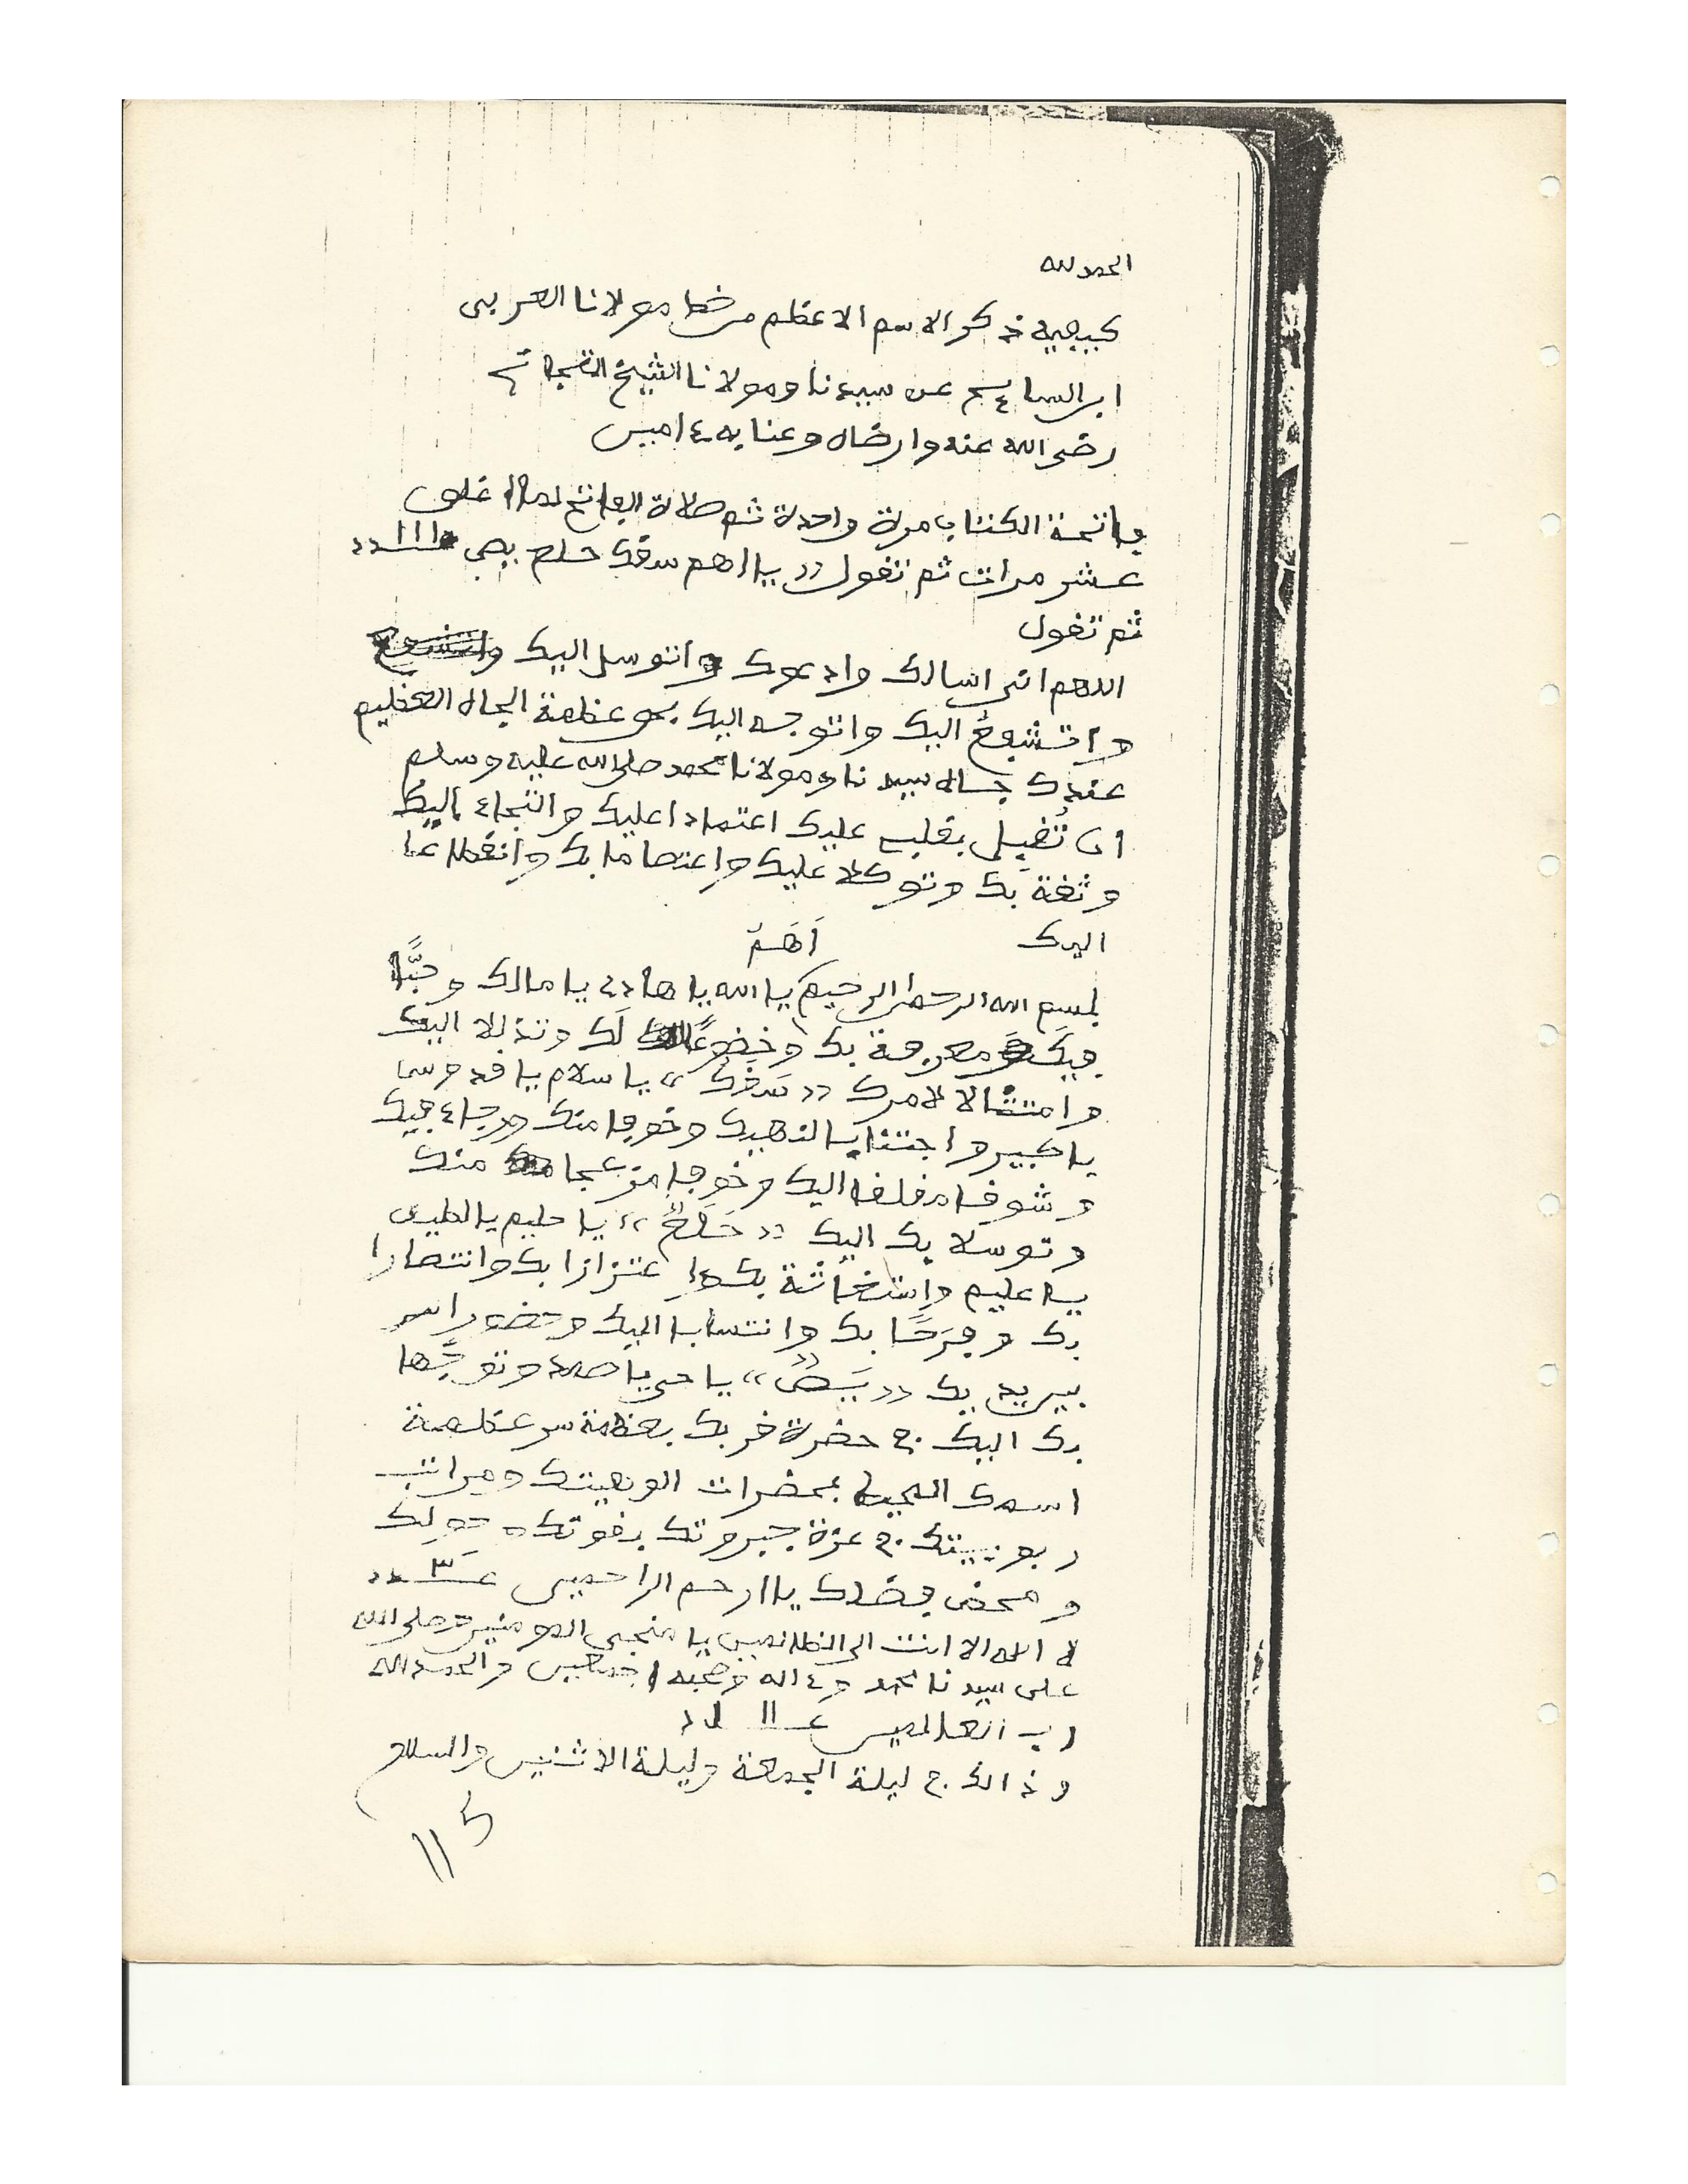 الحمد لله
كيفية ذكر الاسم الاعظم من خط مولانا العربي
ابن السايح عن سيدنا ومولانا الشيخ التجاني
رضي الله عنه وارضاه وعنا به ءامين
فاتحة الكتاب مرة واحدة ثم صلاة الفاتح لما اغلق
عشر مرات ثم تقول «يا اهم سقك حلع يص ١١١ عدد
ثم تقول
اللهم اني اسالك وادعوك واتوسل اليك
واتشفع اليك واتوجه اليك بحق عظمة الجاه العظيم
عندك جاه سيدنا ومولانا محمد صلى الله عليه وسلم
ان تُقبِل بقلبي عليك اعتمادا عليك والتجاء اليك
وثقة بك وتوكلا عليك واعتصاما بك وانقطاعا
اليك اَهَمٌ
بسم الله الرحمن الرحيم يا الله يا هادي يا مالك وحبًّا
فيك ومعرفة بك وخضوعًا لك وتذللا اليك
وامتثالا لامرك «سَقَكٌ» يا سلام يا قدوس
يا كبير واجتنابا لنهيك وخوفا منك ورجاء فيك
وشوقا مقلقا اليك وخوفا مزعجا منك
وتوسلا بك اليك «حَلَعٌ» يا حليم يا لطيف
يا عليم واستغاثة بك واعتزازا بك وانتصارا
بك وفَرَحًا بك وانتسابا اليك وحضورا
بين يديك «يَصٌ» يا حي يا صمد وتوجُّها
بك اليك في حضرة قربك بعظمة سر عظمة
اسمك المحيط بحضرات الوهيتك ومراتب
ربوبيتك في عزة جبروتك بقوتك وحولك
ومحض فضلك يا ارحم الراحمين عـ ٣ ـدد
لا اله الا انت الى الظالمين يا منجي المومنين وصلى الله
على سيدنا محمد وءاله وصحبه اجمعين والحمد لله
رب العالمين عـ ١١ ـدد
وذالك في ليلة الجمعة وليلة الاثنين والسلام